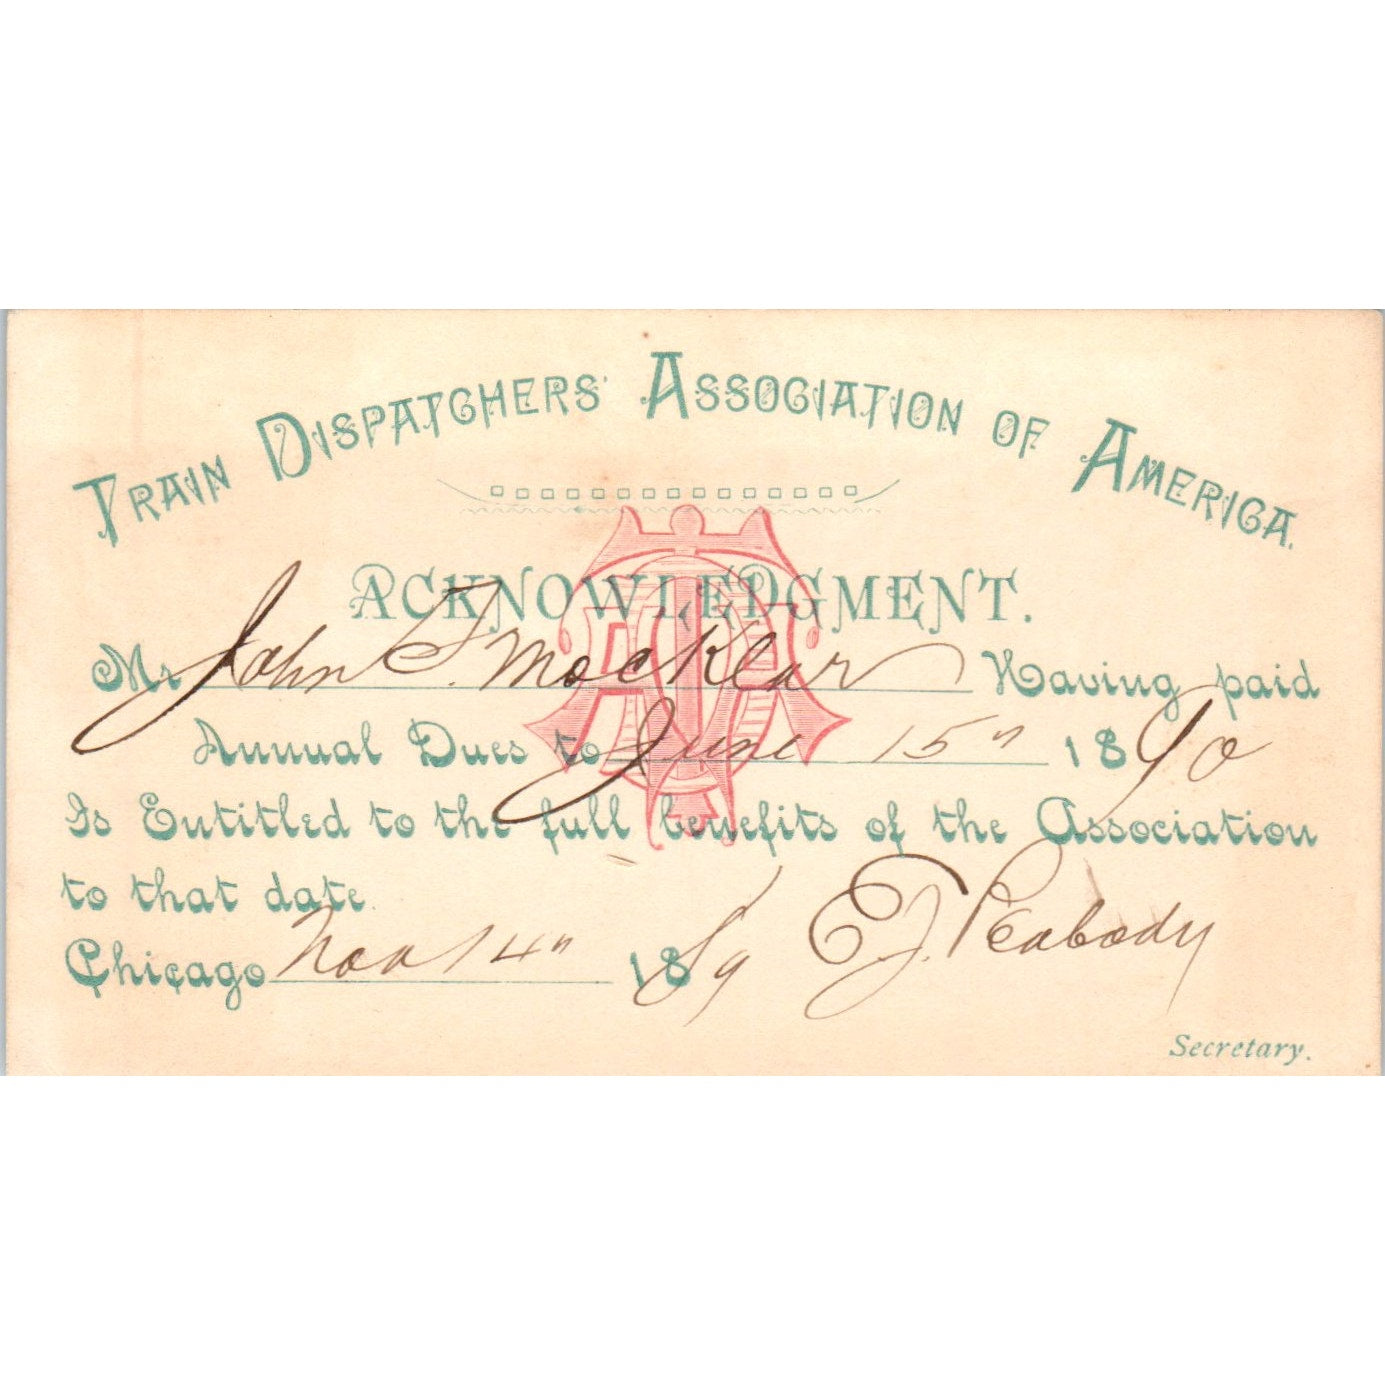 TRAIN DISPATCHERS' ASSOCIATION OF AMERICA.
ACKNOWLEDGMENT.
Mr John T. Mocklar Having paid
Annual Dues to June 15" 1890
Is Entitled to the full benefits of the Association
to that date.
Chicago Nov 14" 1889 E.J. Peabody
Secretary.